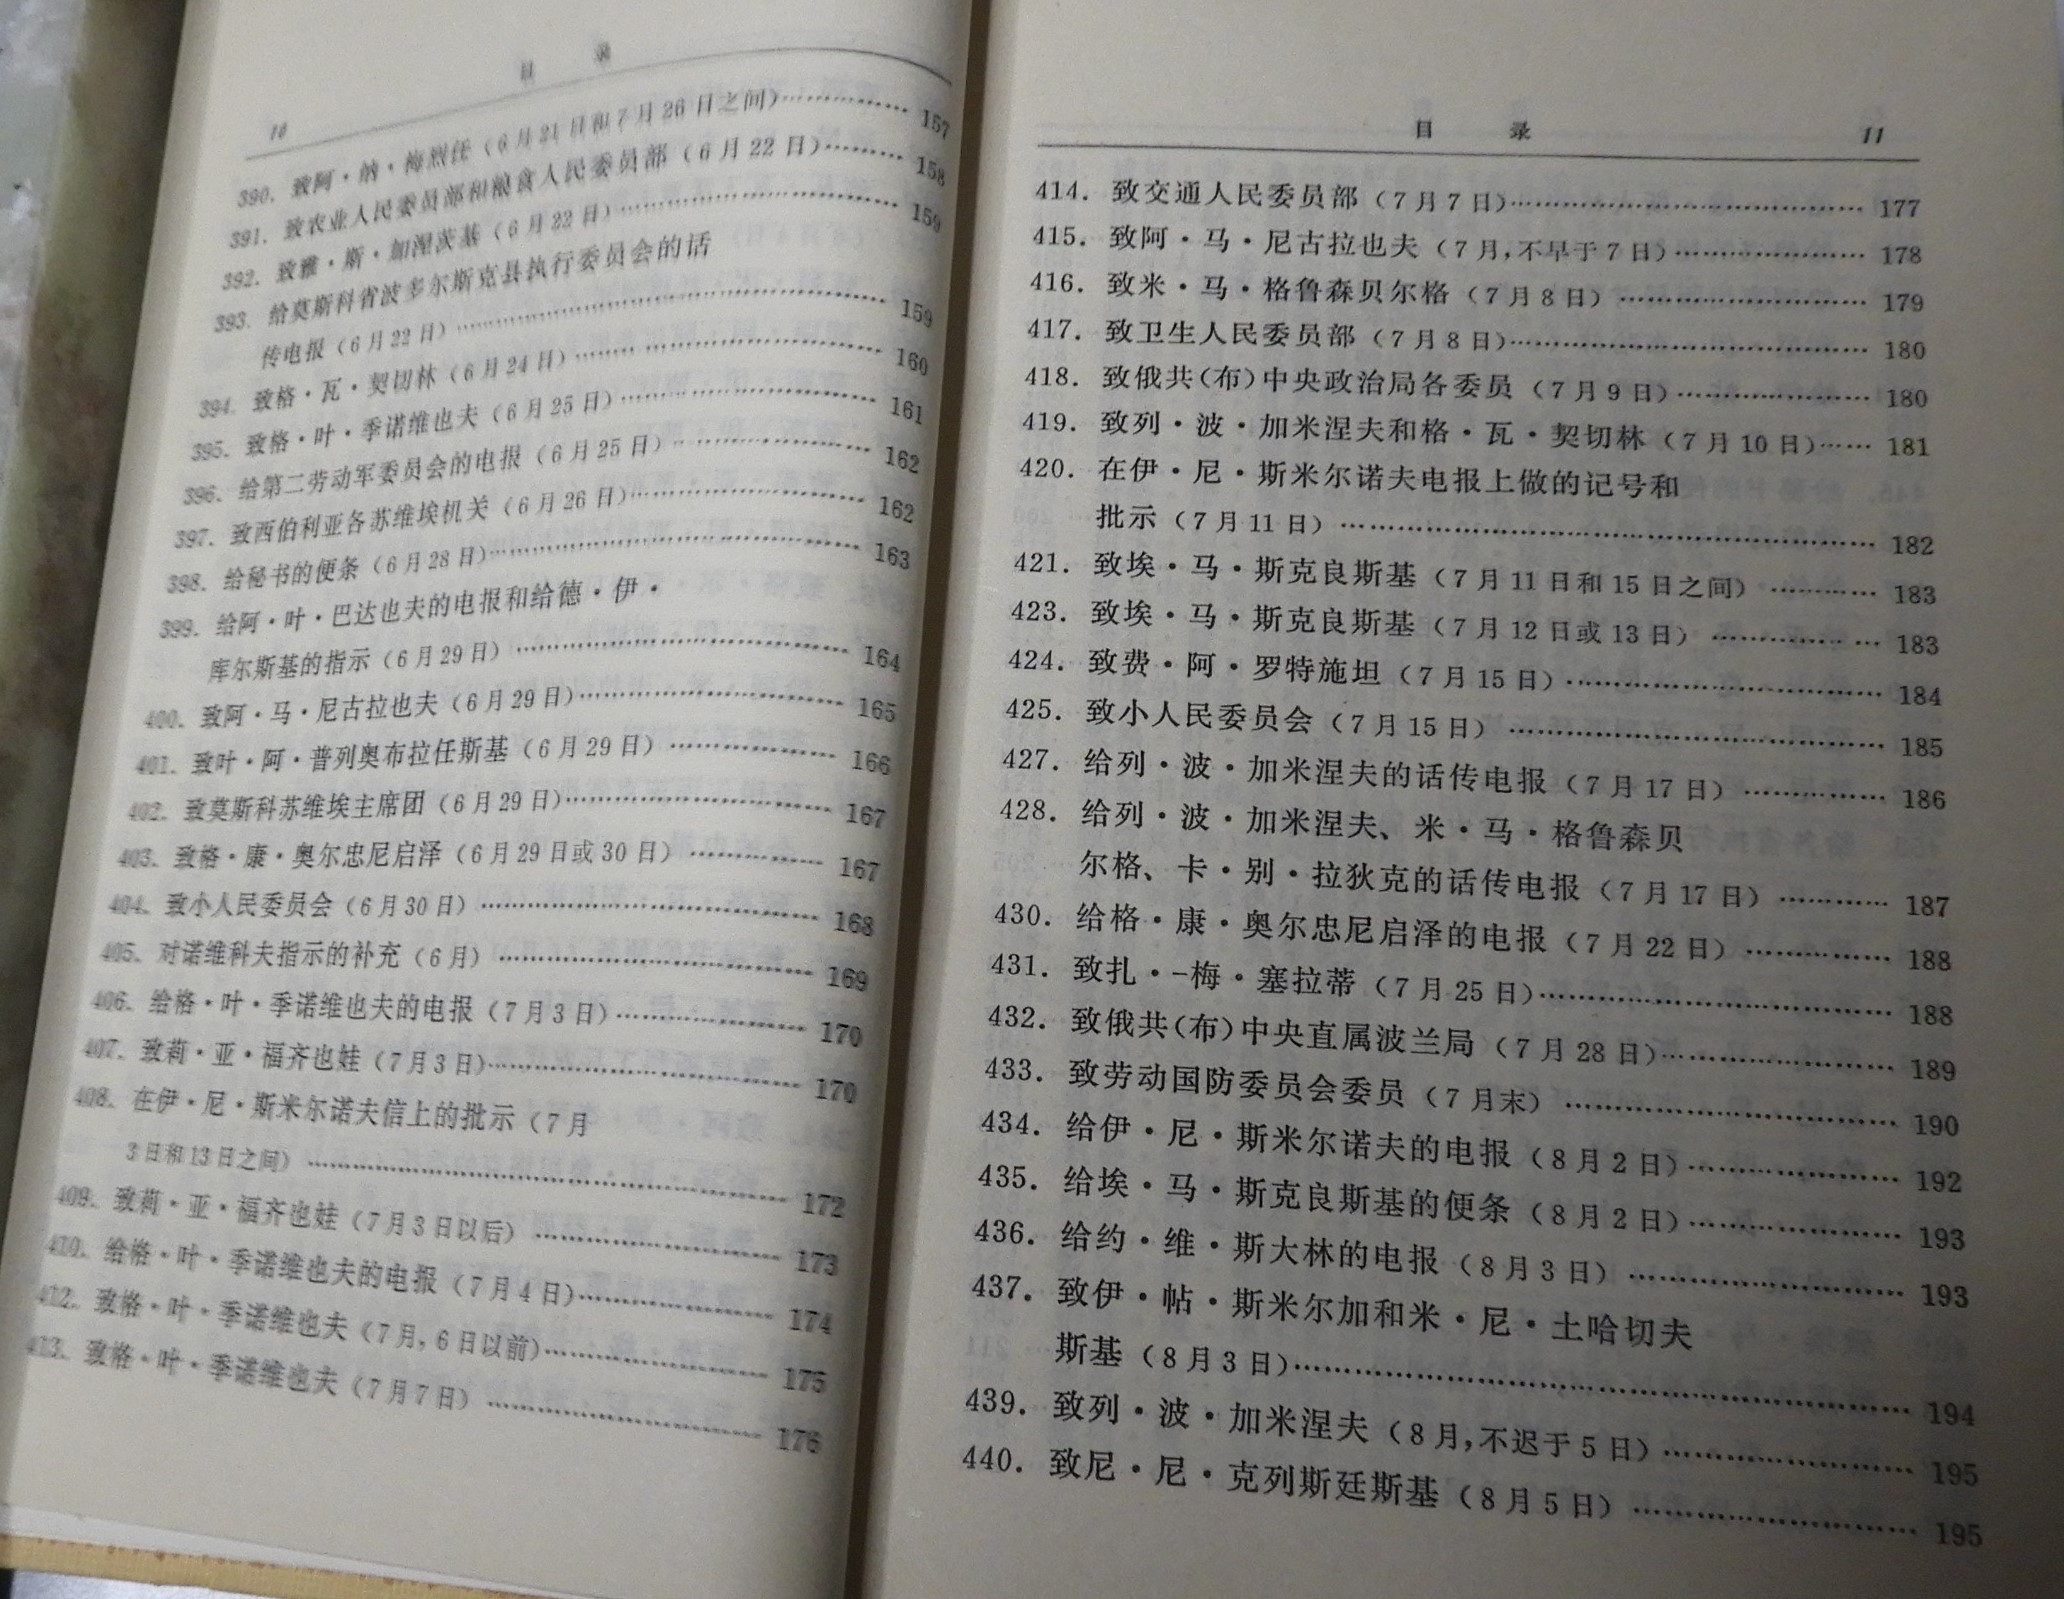 目 录
10
390. 致阿·纳·梅烈任（6月21日和7月26日之间）…… 157
391. 致农业人民委员部和粮食人民委员部（6月22日）…… 158
392. 致雅·斯·加涅茨基（6月22日）…… 159
393. 给莫斯科省波多尔斯克县执行委员会的话
传电报（6月22日）…… 159
394. 致格·瓦·契切林（6月24日）…… 160
395. 致格·叶·季诺维也夫（6月25日）…… 161
396. 给第二劳动军委员会的电报（6月25日）…… 162
397. 致西伯利亚各苏维埃机关（6月26日）…… 162
398. 给秘书的便条（6月28日）…… 163
399. 给阿·叶·巴达也夫的电报和给德·伊·
库尔斯基的指示（6月29日）…… 164
400. 致阿·马·尼古拉也夫（6月29日）…… 165
401. 致叶·阿·普列奥布拉任斯基（6月29日）…… 166
402. 致莫斯科苏维埃主席团（6月29日）…… 167
403. 致格·康·奥尔忠尼启泽（6月29日或30日）…… 167
404. 致小人民委员会（6月30日）…… 168
405. 对诺维科夫指示的补充（6月）…… 169
406. 给格·叶·季诺维也夫的电报（7月3日）…… 170
407. 致莉·亚·福齐也娃（7月3日）…… 170
408. 在伊·尼·斯米尔诺夫信上的批示（7月
3日和13日之间）…… 172
409. 致莉·亚·福齐也娃（7月3日以后）…… 173
410. 给格·叶·季诺维也夫的电报（7月4日）…… 174
412. 致格·叶·季诺维也夫（7月，6日以前）…… 175
413. 致格·叶·季诺维也夫（7月7日）…… 176
目 录 11
414. 致交通人民委员部（7月7日）…… 177
415. 致阿·马·尼古拉也夫（7月，不早于7日）…… 178
416. 致米·马·格鲁森贝尔格（7月8日）…… 179
417. 致卫生人民委员部（7月8日）…… 180
418. 致俄共（布）中央政治局各委员（7月9日）…… 180
419. 致列·波·加米涅夫和格·瓦·契切林（7月10日）…… 181
420. 在伊·尼·斯米尔诺夫电报上做的记号和
批示（7月11日）…… 182
421. 致埃·马·斯克良斯基（7月11日和15日之间）…… 183
423. 致埃·马·斯克良斯基（7月12日或13日）…… 183
424. 致费·阿·罗特施坦（7月15日）…… 184
425. 致小人民委员会（7月15日）…… 185
427. 给列·波·加米涅夫的话传电报（7月17日）…… 186
428. 给列·波·加米涅夫、米·马·格鲁森贝
尔格、卡·别·拉狄克的话传电报（7月17日）…… 187
430. 给格·康·奥尔忠尼启泽的电报（7月22日）…… 188
431. 致扎·-梅·塞拉蒂（7月25日）…… 188
432. 致俄共（布）中央直属波兰局（7月28日）…… 189
433. 致劳动国防委员会委员（7月末）…… 190
434. 给伊·尼·斯米尔诺夫的电报（8月2日）…… 192
435. 给埃·马·斯克良斯基的便条（8月2日）…… 193
436. 给约·维·斯大林的电报（8月3日）…… 193
437. 致伊·帖·斯米尔加和米·尼·土哈切夫
斯基（8月3日）…… 194
439. 致列·波·加米涅夫（8月，不迟于5日）…… 195
440. 致尼·尼·克列斯廷斯基（8月5日）…… 195